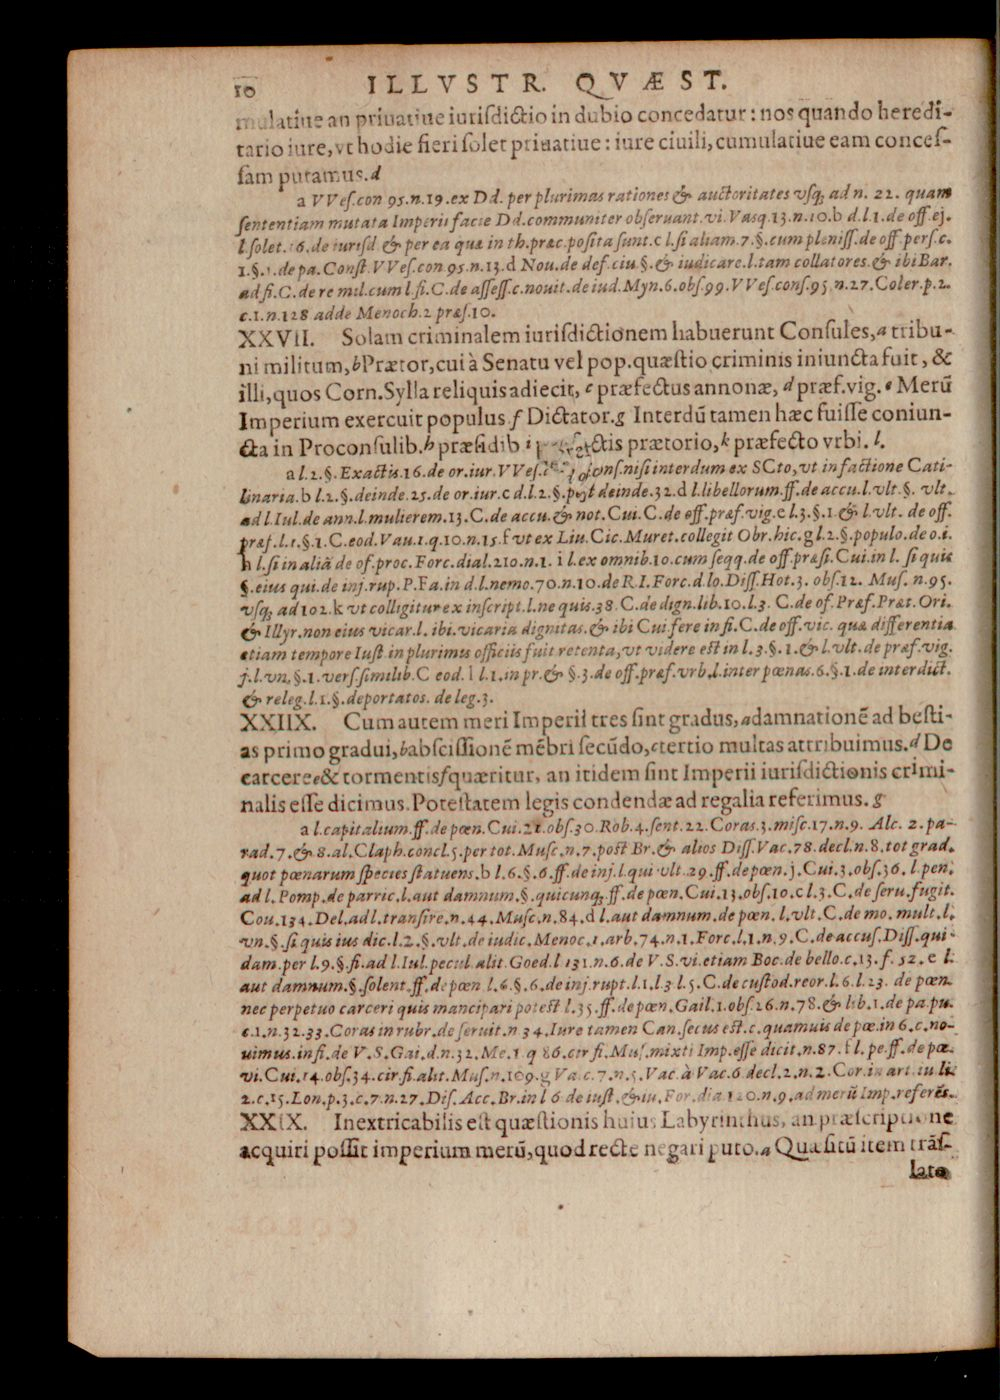 10 ILLVSTR. QVÆST.
mulatiue an priuatiue iurisdictio in dubio concedatur: nos quando heredi-
tario iure, vt hodie fieri solet priuatiue: iure ciuili, cumulatiue eam conces-
sam putamus. d
a VVes. con 95. n. 19. ex Dd. per plurimas rationes & auctoritates vsq; ad n. 22. quam
sententiam mutata Imperii facie Dd. communiter obseruant. vi. Vasq. 13. n. 10. b d. l. 1. de off. ej.
l. solet. 16. de iurisd & per ea quæ in th. præc. posita sunt. c l. si aliam. 7. §. cum pleniss. de off. pers. c.
1. §. 1. de pa. Const. VVes. con. 95. n. 13. d Nou. de def. ciu. §. & iudicare. l. tam collatores. & ibi Bar.
ad fi. C. de re mil. cum l. fi. C. de assess. c. nouit. de iud. Myn. 6. obs. 99. VVes. cons. 95. n. 27. Coler. p. 2.
c. 1. n. 128 adde Menoch. 2 præs. 10.
XXVII. Solam criminalem iurisdictionem habuerunt Consules, a tribu-
ni militum, b Prætor, cui à Senatu vel pop. quæstio criminis iniuncta fuit, &
illi, quos Corn. Sylla reliquis adiecit, c præfectus annonæ, d præf. vig. e Merū
Imperium exercuit populus f Dictator. g Interdū tamen hæc fuisse coniun-
cta in Proconsulib. h præsidib i ctis prætorio, k præfecto vrbi. l.
a l. 2. §. Exactis. 16. de or. iur. VVes. cons. nisi interdum ex SCto, vt in factione Cati-
linaria. b l. 2. §. deinde. 25. de or. iur. c d. l. 2. §. post deinde. 32. d l. libellorum. ff. de accu. l. vlt. §. vlt.
ad l. Iul. de ann. l. mulierem. 13. C. de accu. & not. Cui. C. de off. præf. vig. e l. 3. §. 1. & l. vlt. de off.
præf. l. 1. §. 1. C. eod. Vau. 1. q. 10. n. 15. f vt ex Liu. Cic. Muret. collegit Obr. hic. g l. 2. §. populo. de o. i.
h l. si in aliā de of. proc. Forc. dial. 210. n. 1. i l. ex omnib. 10. cum seqq. de off. præsi. Cui. in l. si quis
§. eius qui. de inj. rup. P. Fa. in d. l. nemo. 70. n. 10. de R. I. Forc. d. lo. Diss. Hot. 3. obs. 12. Mus. n. 95.
vsq; ad 102. k vt colligitur ex inscript. l. ne quis. 38. C. de dign. lib. 10. l. 3. C. de of. Præf. Præt. Ori.
& Illyr. non eius vicar. l. ibi. vicaria dignitas. & ibi Cui. fere in fi. C. de off. vic. quæ differentia
etiam tempore Iust. in plurimis officiis fuit retenta, vt videre est in l. 3. §. 1. & l. vlt. de præf. vig.
j. l. vn. §. 1. vers. similib. C eod. l l. 1. in pr. & §. 3. de off. præf. vrb. l. inter pœnas. 6. §. 1. de interdict.
& releg. l. 1. §. deportatos. de leg. 3.
XXIIX. Cum autem meri Imperii tres sint gradus, a damnationē ad besti-
as primo gradui, b abscissionē mēbri secūdo, c tertio multas attribuimus. d De
carcere e & tormentis f quæritur, an itidem sint Imperii iurisdictionis crimi-
nalis esse dicimus. Potestatem legis condendæ ad regalia referimus. g
a l. capitalium. ff. de pœn. Cui. 21. obs. 30. Rob. 4. sent. 22. Coras. 3. misc. 17. n. 9. Alc. 2. pa-
rad. 7. & 8. al. Claph. concl. 5. per tot. Musc. n. 7. post Br. & alios Diss. Vac. 78. decl. n. 8. tot grad.
quot pœnarum species statuens. b l. 6. §. 6. ff. de inj. l. qui vlt. 29. ff. de pœn. j. Cui. 3. obs. 36. l. pen.
ad l. Pomp. de parric. l. aut damnum. §. quicunq; ff. de pœn. Cui. 13. obs. 10. c l. 3. C. de seru. fugit.
Cou. 134. Del. ad l. transire. n. 44. Musc. n. 84. d l. aut damnum. de pœn. l. vlt. C. de mo. mult. l.
vn. §. si quis ius dic. l. 2. §. vlt. de iudic. Menoc. 1. arb. 74. n. 1. Forc. l. 1. n. 9. C. de accus. Diss. qui-
dam. per l. 9. §. fi. ad l. Iul. pecul. alit. Goed. l 131. n. 6. de V. S. vi. etiam Boc. de bello. c. 13. f. 52. e l.
aut damnum. §. solent. ff. de pœn l. 6. §. 6. de inj. rupt. l. 1. l. 3 l. 5. C. de custod. reor. l. 6. l. 23. de pœn.
nec perpetuo carceri quis mancipari potest l. 35. ff. de pœn. Gail. 1. obs. 26. n. 78. & lib. 1. de pa. pu.
c. 1. n. 32. 33. Coras in rubr. de seruit. n 34. Iure tamen Can. secus est. c. quamuis de pœ. in 6. c. no-
uimus. in fi. de V. S. Gai. d. n. 32. Me. 1 q 86. cir fi. Mus. mixti Imp. esse dicit. n. 87. f l. pe. ff. de pœ.
vi. Cui. 14. obs. 34. cir. fi. alit. Mus. n. 109. g Va. c. 7. n. 5. Vac. à Vac. 6 decl. 2. n. 2. Cor. in art. iu li.
2. c. 15. Lon. p. 3. c. 7. n. 27. Dis. Acc. Br. in l 6 de iust. & iu. For. dia. 120. n. 9. ad merū Imp. referēs.
XXIX. Inextricabilis est quæstionis huius Labyrinthus, an præscriptione
acquiri possit imperium merū, quod recte negari puto. a Quæsitū item trās-
lato